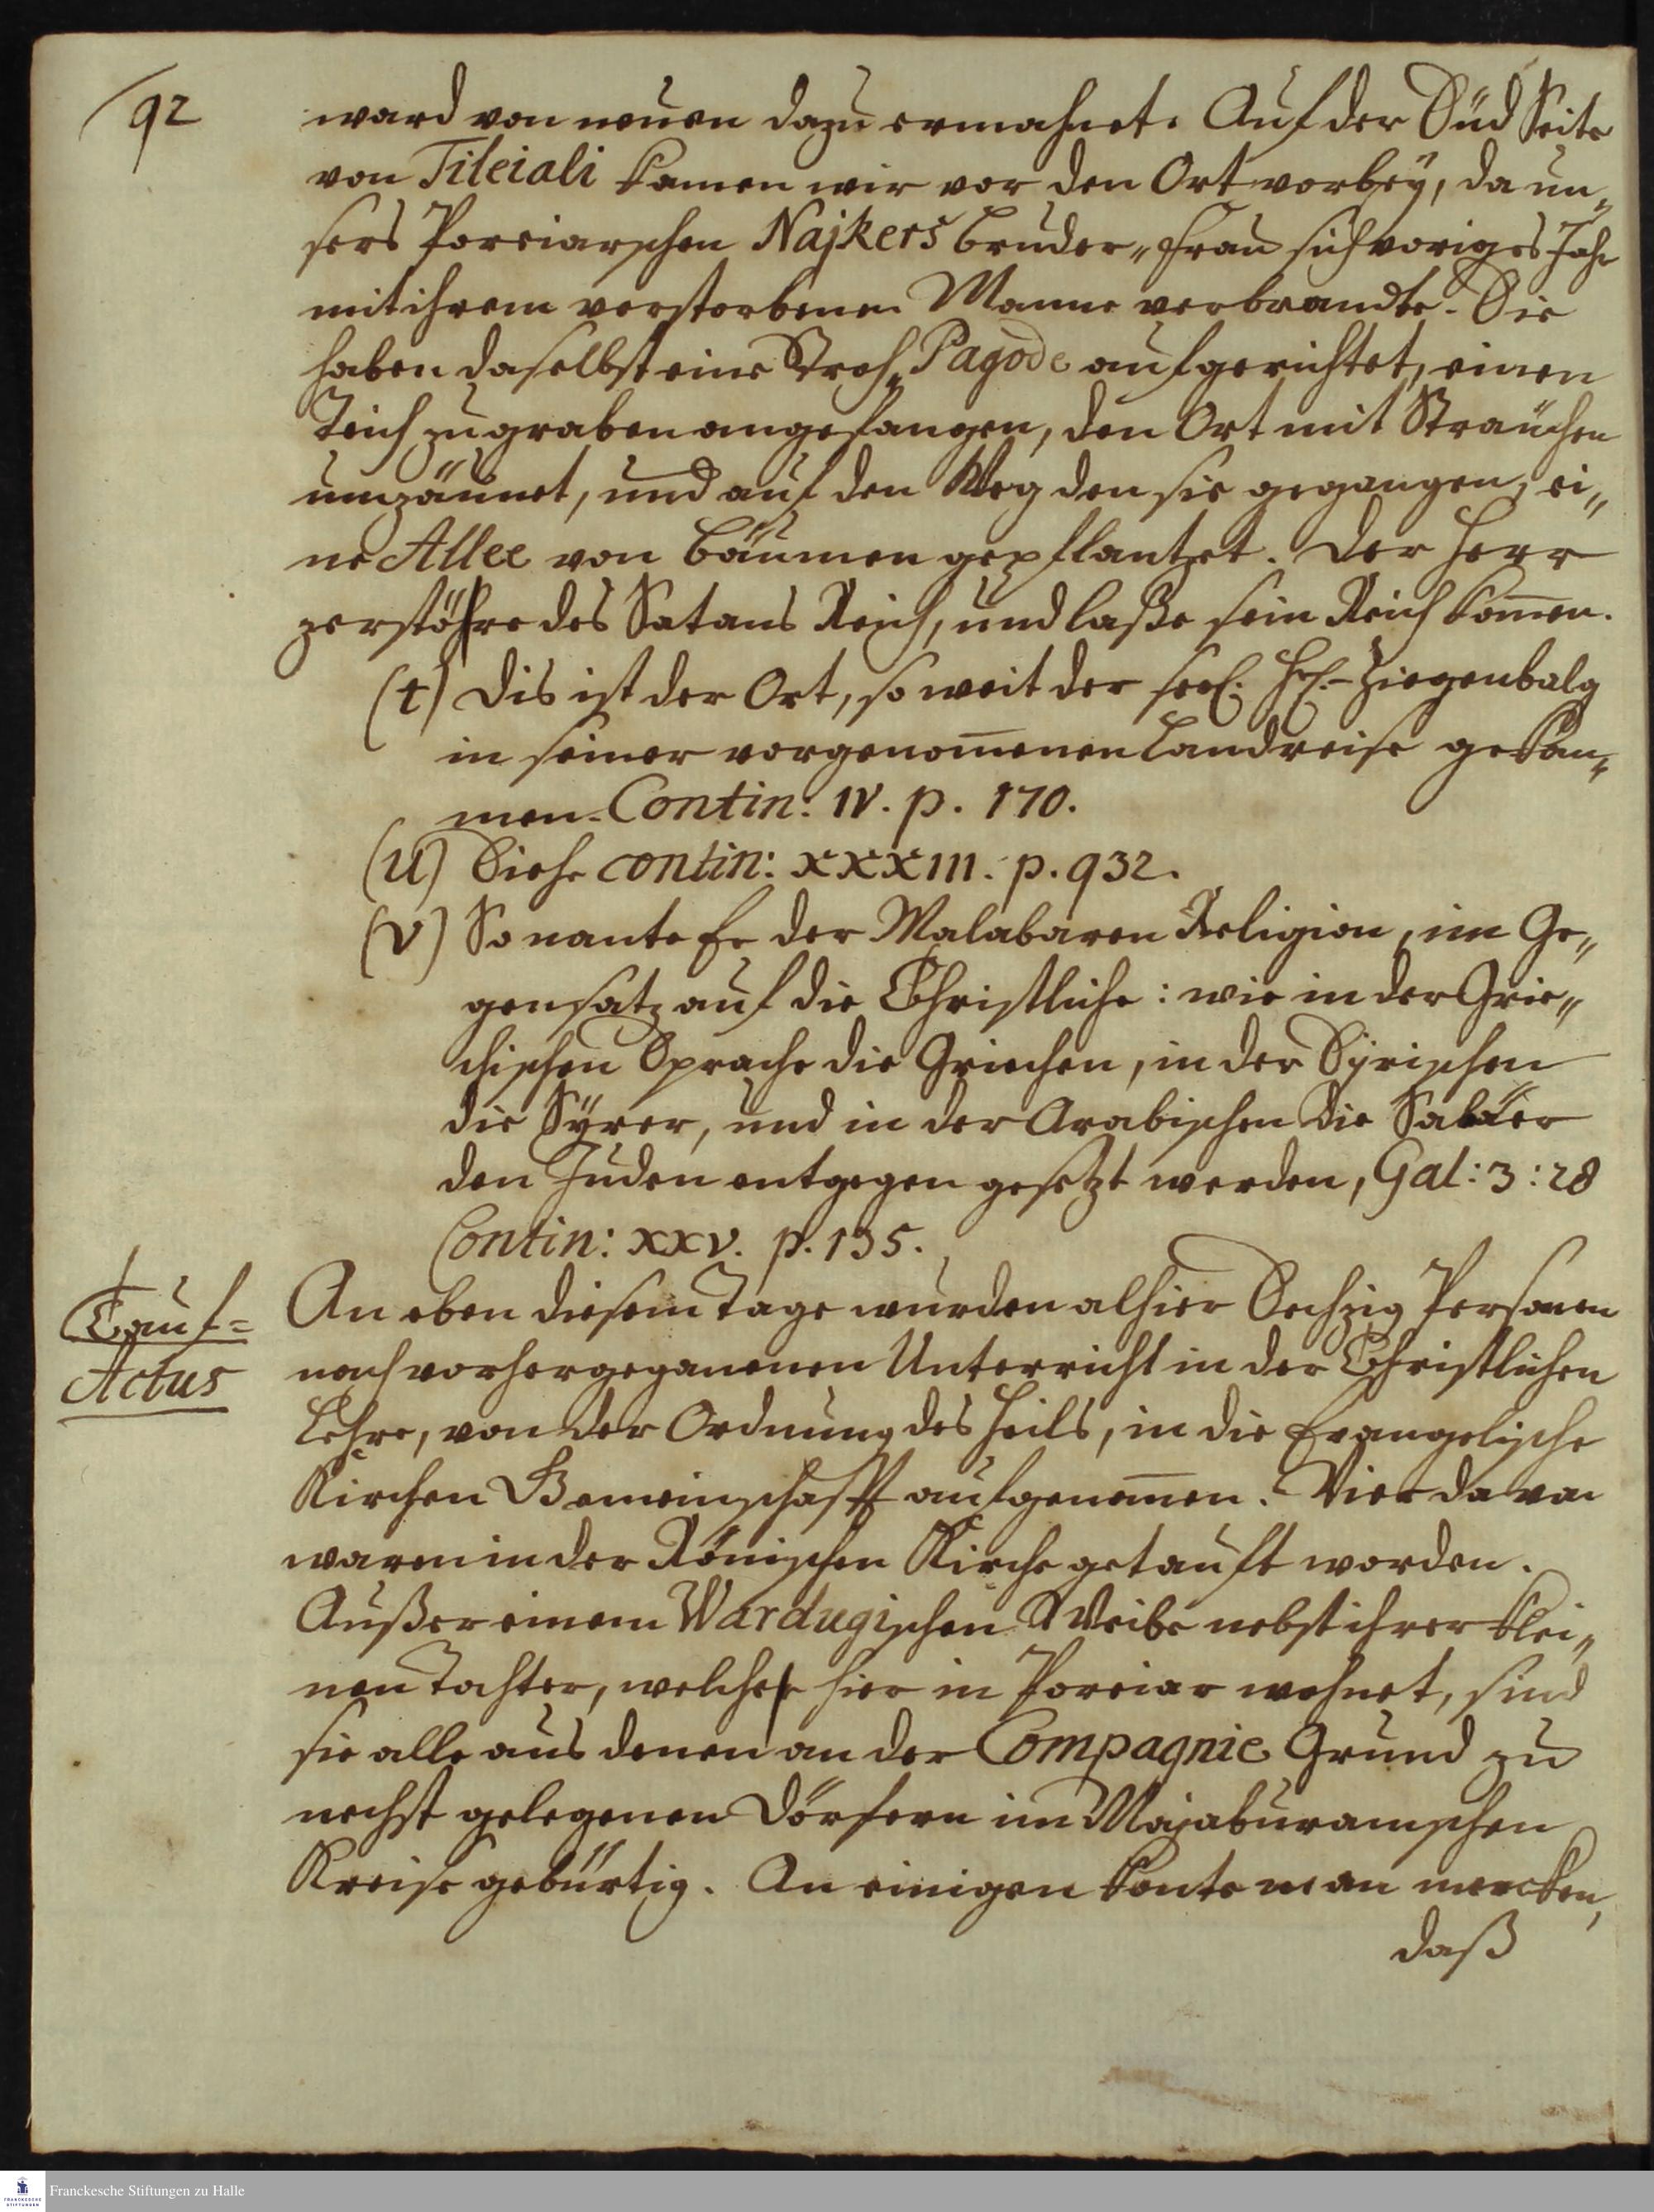 92
ward von neuen dazu ermahnet. Auf der Süd Seite
von Tileiali kamen wir vor den Ort vorbeÿ, da un„
sers Poreiarschen Najkers Bruder„Frau sich voriges Jahr
mit ihrem verstorbenen Manne verbrandte. Sie
haben daselbst eine Stroh„Pagode aufgerichtet, einen
Teich zu graben angefangen, den Ort mit Sträuchen
umzäunet, und auf den Weg den sie gegangen, ei„
ne Allee von Bäumen gepflantzet. Der Herr
zerstöhre des Satans Reich, und laße sein Reich kom̅en.
(t) Dis ist der Ort, so weit der seel. Hr.-Ziegenbalg
in seiner vorgenom̅enen Landreise gekom„
men. Contin: IV. p. 170.
(u) Siehe contin: XXXIII. p. 932.
(v) So nante Er der Malabaren Religion, im Ge„
gensatz auf die Christliche: wie in der Grie„
chischen Sprache die Griechen, in der Sÿrischen
die Sÿrer, und in der Arabischen die Sabäer
den Juden entgegen gesetzt werden, Gal: 3: 28
Contin: XXV. p. 135.
Tauf=
Actus
An eben diesem Tage wurden alhier Sechzig Personen
nach vorhergeganenen Unterricht in der Christlichen
Lehre, von der Ordnung des Heils, in die Evangelische
Kirchen Gemeinschafft aufgenom̅en. Vier davon
waren in der Römischen Kirche getauft worden.
Außer einem Wardugischen Weibe nebst ihrer klei„
nen Tochter, welche hier in Poreiar wohnet, sind
sie alle aus denen an der Compagnie Grund zu
nechst gelegenen Dörfern im Majaburamschen
Kreise gebürtig. An einigen konte man mercken,
daß
Franckesche Stiftungen zu Halle
FRANCKESCHE STIFTUNGEN